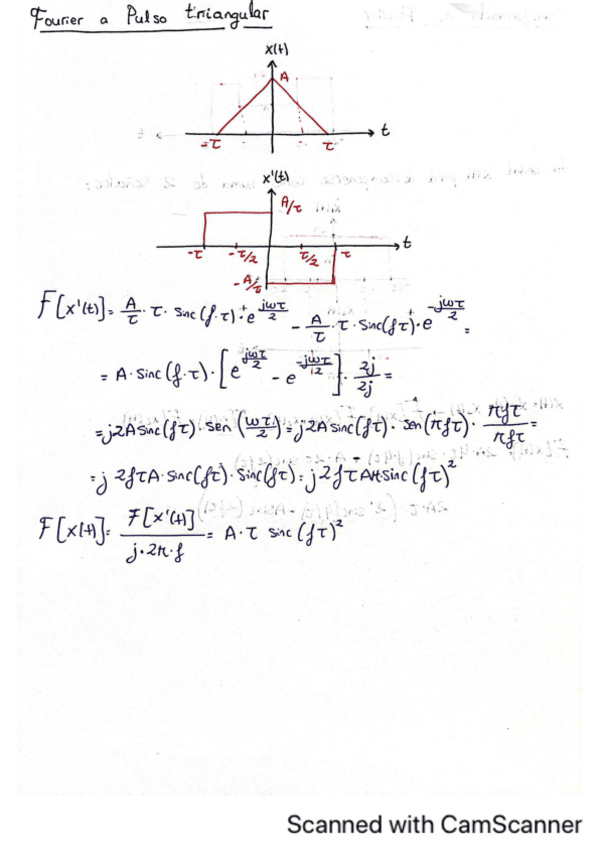 Fourier a Pulso triangular
x(t)
A
-τ τ t
x'(t)
A/τ
-τ -τ/2 τ/2 τ t
-A/τ
F[x'(t)]= A/τ · τ · sinc(f·τ)·e^(jωτ/2) - A/τ · τ · sinc(fτ)·e^(-jωτ/2) =
= A·sinc(f·τ)·[e^(jωτ/2) - e^(-jωτ/2)]· 2j/2j =
=j2A sinc(fτ)·sen(ωτ/2)=j2A sinc(fτ)·sen(πfτ)· πfτ/πfτ =
=j2fτA·sinc(fτ)·sinc(fτ)=j2fτAπsinc(fτ)²
F[x(t)]= F[x'(t)]/j·2π·f = A·τ sinc(fτ)²
Scanned with CamScanner